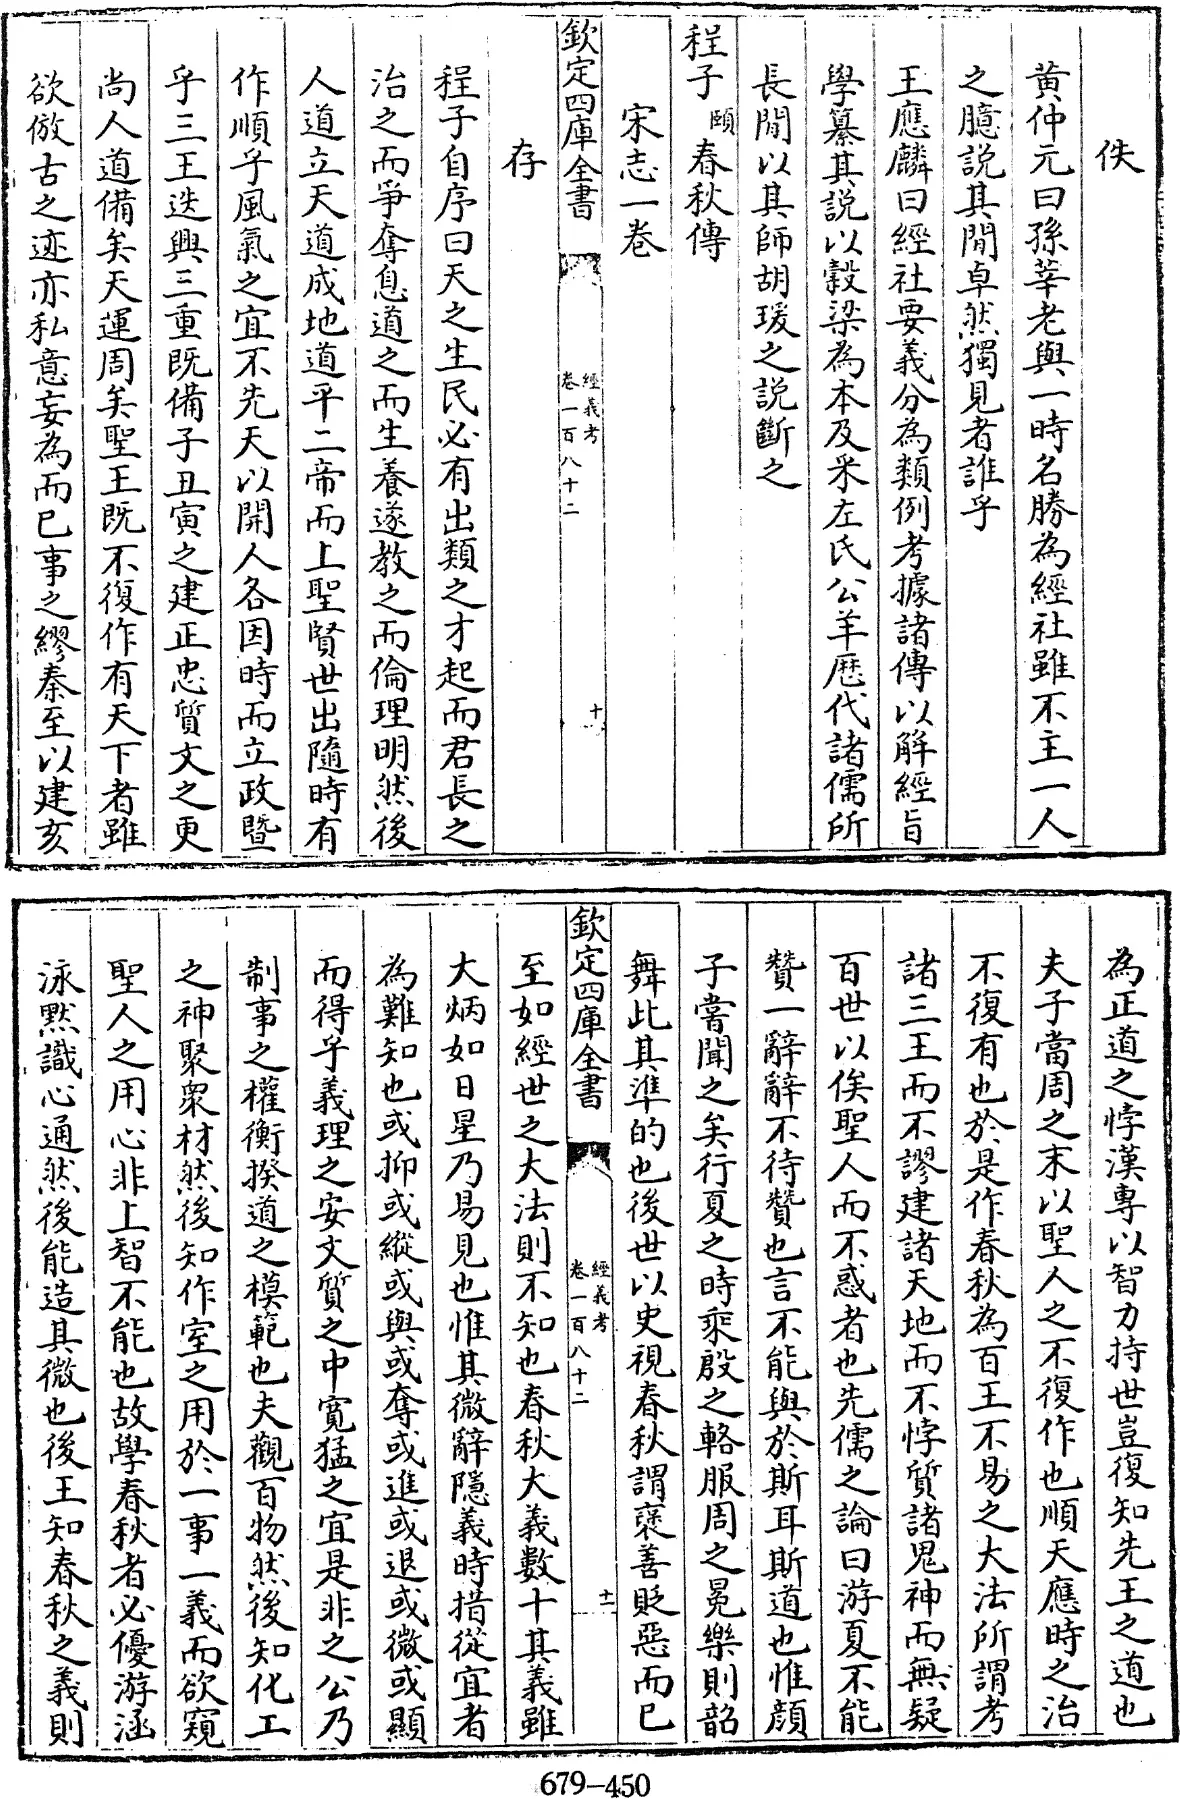 佚
黄仲元曰孫莘老與一時名勝為經社雖不主一人
之臆説其閒卓然獨見者誰乎
王應麟曰經社要義分為類例考據諸傳以解經旨
學纂其説以穀梁為本及采左氏公羊歴代諸儒所
長閒以其師胡瑗之説斷之
程子頤春秋傳
宋志一卷
欽定四庫全書
經義考
卷一百八十二
十
存
程子自序曰天之生民必有出類之才起而君長之
治之而爭奪息道之而生養遂教之而倫理明然後
人道立天道成地道平二帝而上聖賢世出隨時有
作順乎風氣之宜不先天以開人各因時而立政暨
乎三王迭興三重既備子丑寅之建正忠質文之更
尚人道備矣天運周矣聖王既不復作有天下者雖
欲倣古之迹亦私意妄為而已事之繆秦至以建亥
為正道之悖漢專以智力持世豈復知先王之道也
夫子當周之末以聖人之不復作也順天應時之治
不復有也於是作春秋為百王不易之大法所謂考
諸三王而不謬建諸天地而不悖質諸鬼神而無疑
百世以俟聖人而不惑者也先儒之論曰游夏不能
贊一辭辭不待贊也言不能與於斯耳斯道也惟顔
子嘗聞之矣行夏之時乘殷之輅服周之冕樂則韶
舞此其凖的也後世以史視春秋謂襃善貶惡而已
欽定四庫全書
經義考
卷一百八十二
十一
至如經世之大法則不知也春秋大義數十其義雖
大炳如日星乃易見也惟其微辭隱義時措從宜者
為難知也或抑或縱或與或奪或進或退或微或顯
而得乎義理之安文質之中寛猛之宜是非之公乃
制事之權衡揆道之模範也夫觀百物然後知化工
之神聚衆材然後知作室之用於一事一義而欲窺
聖人之用心非上智不能也故學春秋者必優游涵
泳黙識心通然後能造其微也後王知春秋之義則
679-450